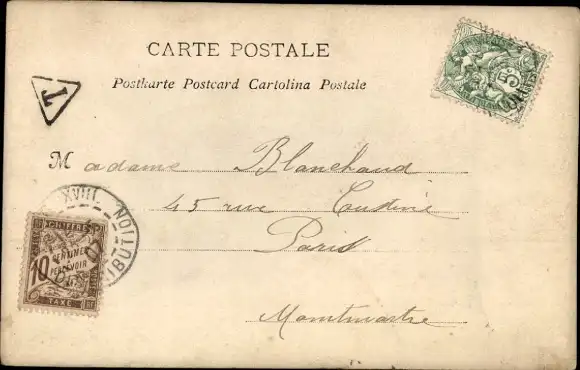 CARTE POSTALE
Postkarte Postcard Cartolina Postale
T
Madame Blanchaud
45 rue
Paris
Montmartre
XVIII
DISTRIBUTION
CHIFFRE
10 CENTIMES
A PERCEVOIR
TAXE
5